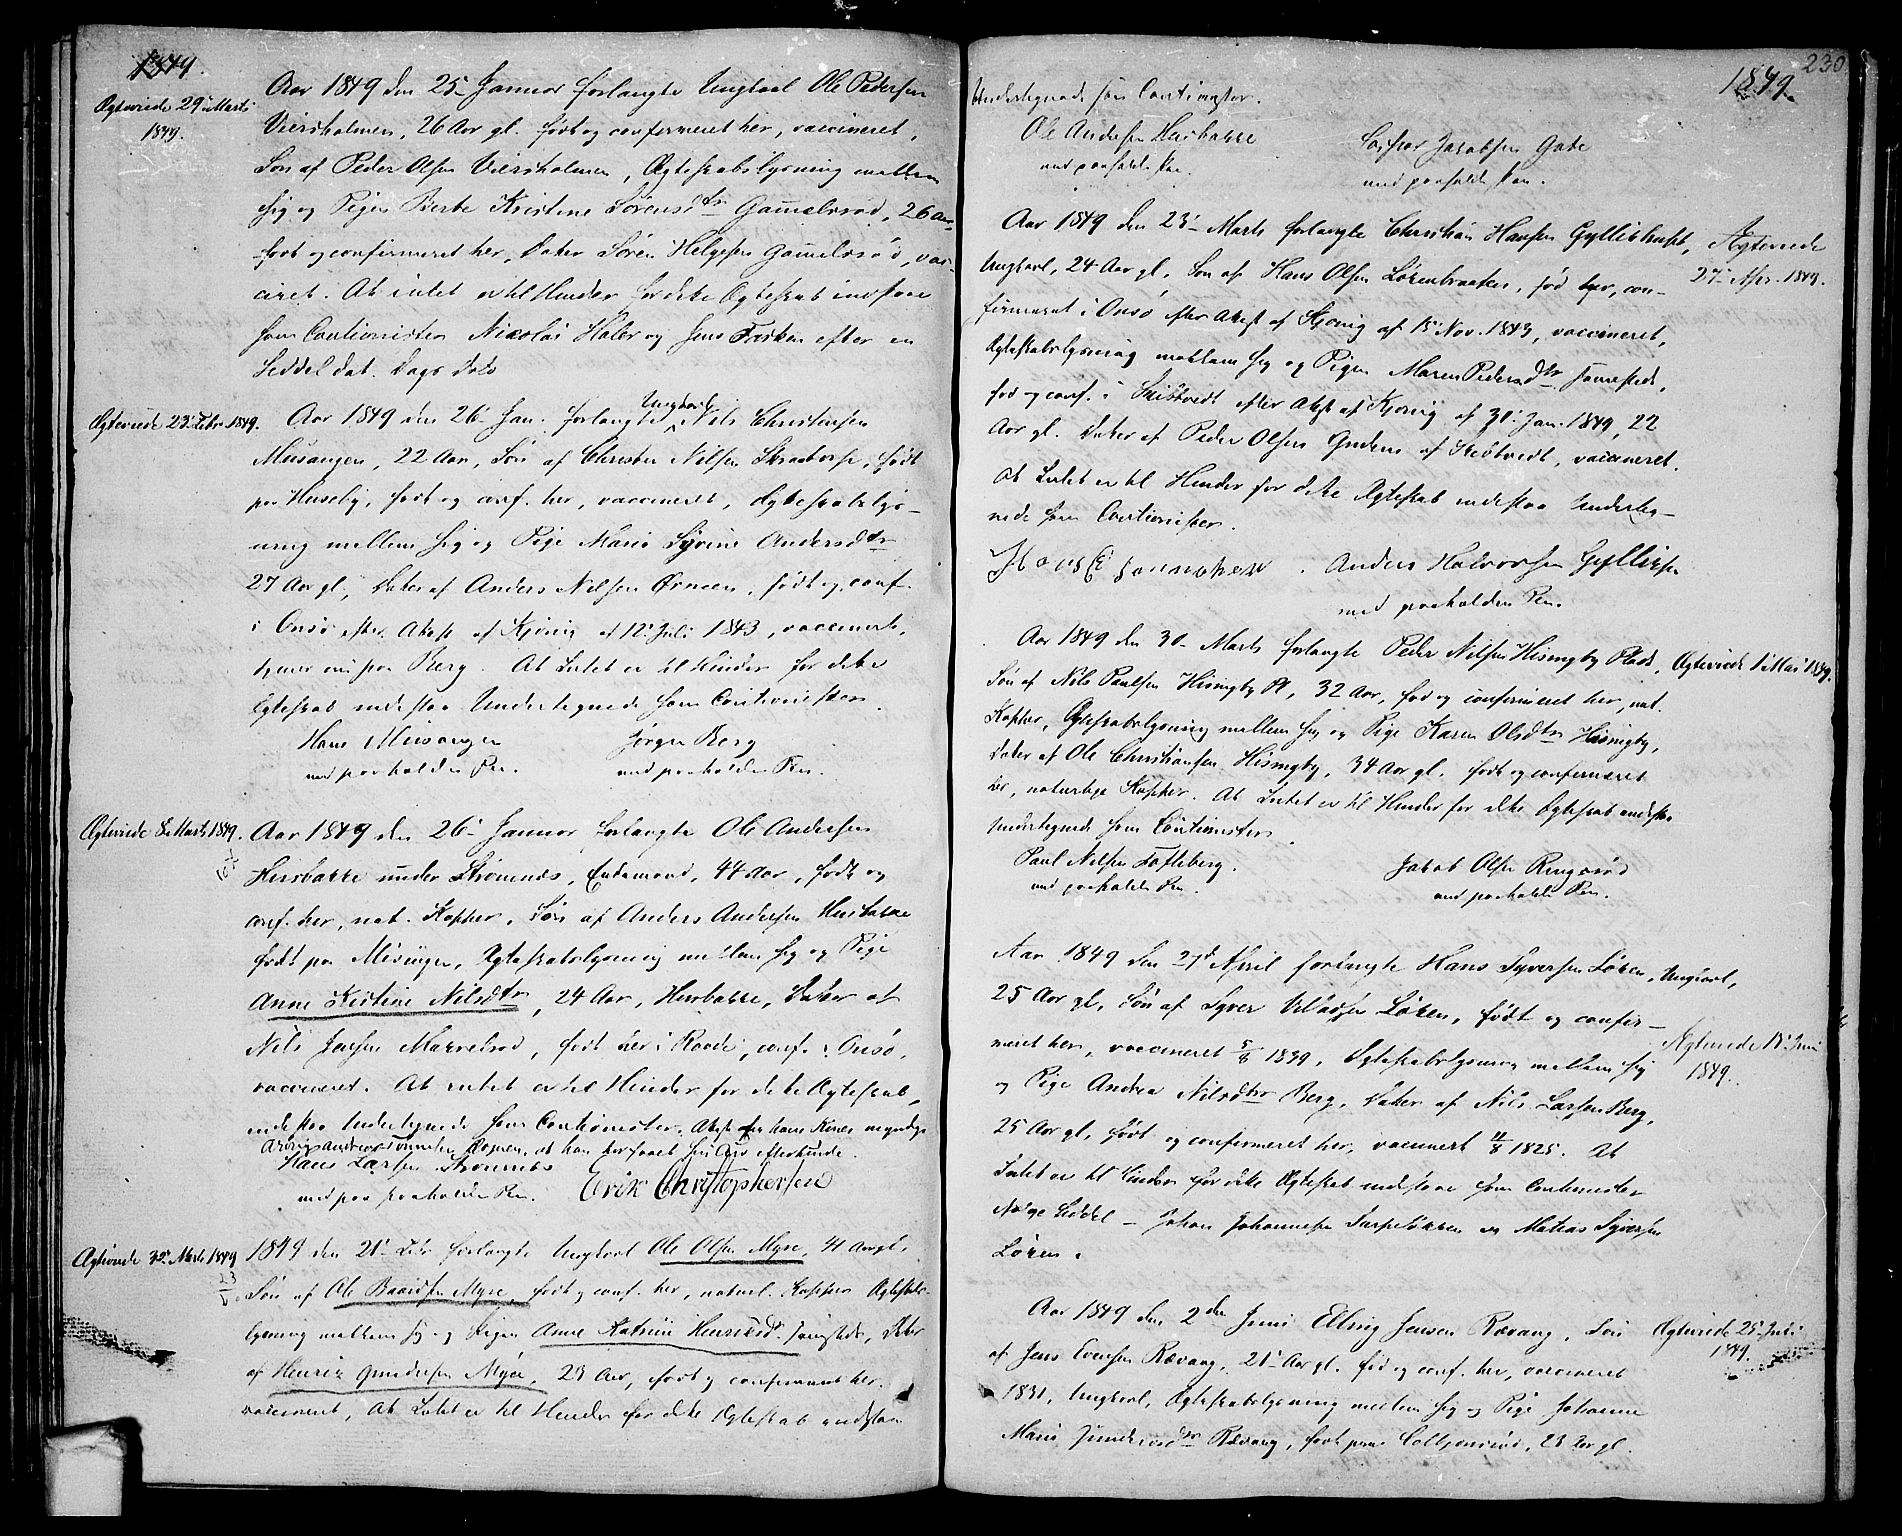 1849.
Ægteviede 29 Marts
1849.
Aar 1849 den 25 Januar forlangte Ungkarl Ole Pedersen
Viersholmen, 26 Aar gl. født og confirmeret her, vaccineret,
Søn af Peder Olsen Viersholmen, Ægteskabslysning mellem
sig og Pigen Berte Kristine Sørensdtr Gamelsrød, 26 Aar
født og confirmeret her, Datter Søren Helgesen Gamelsrød, vac-
ciret. At intet er til Hinder for dette Ægteskab indstaae
som Cautionister Nicolai Haler og Jens efter en
Seddel dat. Dags Dato
Ægteviede 23 Febr 1849.
Aar 1849 den 26 Jan. forlangte Ungkarl Nils Christensen
Musangen, 22 Aar, Søn af Christen Nilsen født
paa Huseby, født og conf. her, vaccineret, Ægteskabslys-
ning mellem sig og Pige Maria Syrine Andersdtr
27 Aar gl, Datter af Anders Nilsen Ørmen, født og conf.
i Onsø efter Attest af Kjønig af 12 Juli 1843, vaccineret,
tjener nu paa Berg. At Intet er til Hinder for dette
Ægteskab indestaa Undertegnede som Cautionister.
Hans Musangen Jørgen Berg
med paaholden Pen. med paaholden Pen.
Ægteviede 8 Marts 1849.
Aar 1849 den 26 Januar forlangte Ole Andersen
Husbakke under Strømnes, Enkemand, 44 Aar, født og
conf. her, nat. Kopper, Søn af Anders Andersen Husbakke
født paa Missingen, Ægteskabslysning mellem sig og Pige
Anne Kistine Nilsdtr, 24 Aar, Husbakke, Datter af
Nils Jensen født her i Raade, conf. i Onsø,
vaccineret. At intet er til Hinder for dette Ægteskab,
indestaa Undertegnede som Cautionister. Attest fra hans Kones myndige
at han har
Hans Larsen Strømnes
med paaholden Pen. Erik Christophersen
Ægteviede 30 Marts 1849
1849 den 21 Febr forlangte Ungkarl Ole Olsen Myre, 41 Aar gl,
Søn af Ole Baardsen Myre, født og conf. her, naturl. Kopper Ægteskabs-
lysning mellem sig og Pigen Anne Katrine Henriksd. sammesteds, Datter
af Henrik Gundersen Myre, 23 Aar, født og confirmeret her.
vaccineret, At Intet er til Hinder for dette Ægteskab indestaa
230
1849.
Undertegnede som Cautionister.
Ole Andersen Husbakke Casper Jacobsen Gate
med paaholden Pen. med paaholden Pen.
Aar 1849 den 23 Marts forlangte Christian Hansen
Ungkarl, 24 Aar gl, Søn af Hans Olsen Lørenbraaten, fød her, con-
firmeret i Onsø efter Attest af Kjønig af 15 Nov. 1843, vaccineret,
Ægteskabslysning mellem sig og Pigen Maren Pedersdtr sammesteds,
fød og conf. i Skibtvedt efter Attest af Kjønig af 31 Jan. 1849, 22
Aar gl. Datter af Peder Olsen af Skibtvedt, vaccineret.
At Intet er til Hinder for dette Ægteskab indestaa Underteg-
nede som Cautionister.
Anders Halvorsen
med paaholden Pen.
Ægteviede
27 Apr. 1849.
Aar 1849 den 30 Marts forlangte Peder Nilsen Hisingby Plads,
Søn af Nils Paulsen Hisingby Pl, 32 Aar, fød og confirmeret her, nat.
Kopper, Ægteskabslysning mellem sig og Pige Karen Olsdtr Hisingby,
Datter af Ole Christiansen Hisingby, 34 Aar gl. født og confirmeret
her, naturlige Kopper. At Intet er til Hinder for dette Ægteskab indestaa
Undertegnede som Cautionister.
Paul Nilsen Jakob Olsen Ringsrød
med paaholden Pen. med paaholden Pen.
Ægteviede 1 Mai 1849.
Aar 1849 den 27 April forlangte Hans Syversen Løken, Ungkarl,
25 Aar gl, Søn af Syver Løken, født og confir-
meret her, vaccineret 5/8 1839, Ægteskabslysning mellem sig
og Pige Andrea Nilsdtr Berg, Datter af Nils Larsen Berg,
25 Aar gl, født og confirmeret her, vaccineret 1825. At
Intet er til Hinder for dette Ægteskab indestaae som Cautionister
følge Seddel – Johan Johannesen og Mathias Syversen
Løken.
Ægteviede Juni
1849.
Aar 1849 den 2den Juni Elling Jensen Rævang, Søn
af Jens Evensen Rævang, 21 Aar gl. fød og conf. her, vaccineret
1831, Ungkarl, Ægteskabslysning mellem sig og Pige Johanne
Maria Rævang, født paa 23 Aar gl.
Ægteviede 25 Juli
1849.